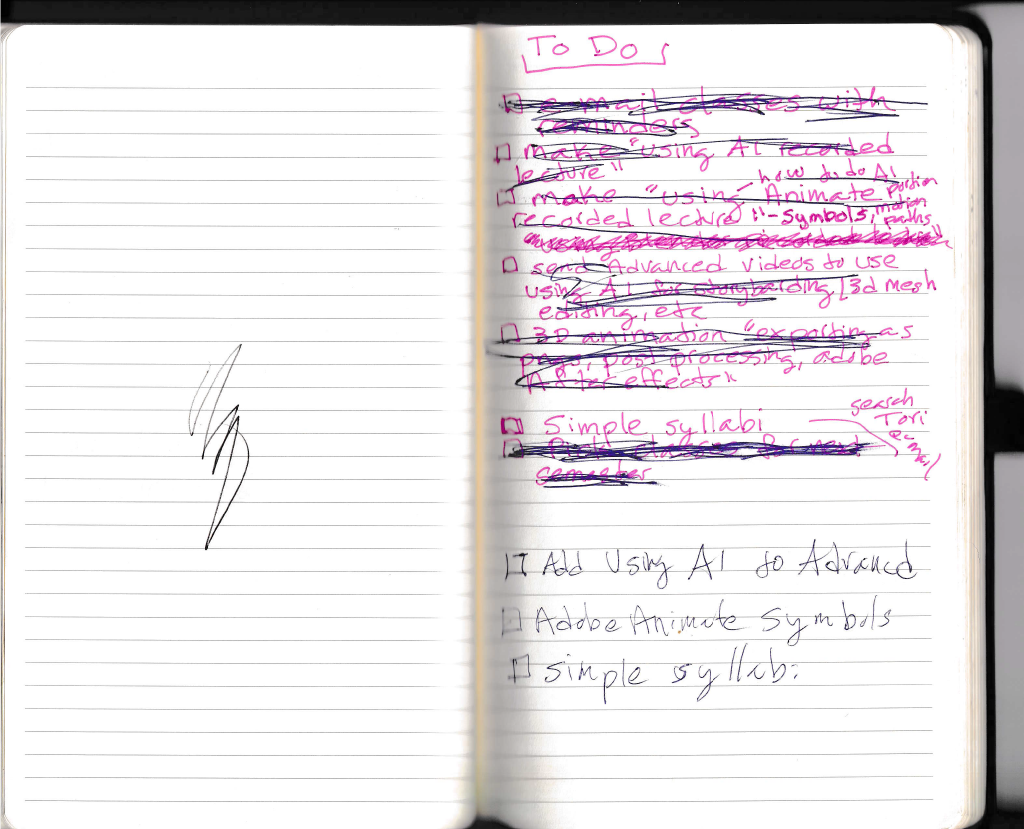 To Do
e-mail classes with
reminders
make "using AI recorded
lecture"
how to do AI
make "using Animate portion
recorded lecture" - symbols, motion
paths
send Advanced videos to use
using AI for storybarding, 3d mesh
editing, etc
3D animation "exporting as
pngs, post processing, adobe
After effects"
search
Simple syllabi Tori
e-mail
classes for next
semester
Add Using AI to Advanced
Adobe Animate Symbols
Simple syllabi